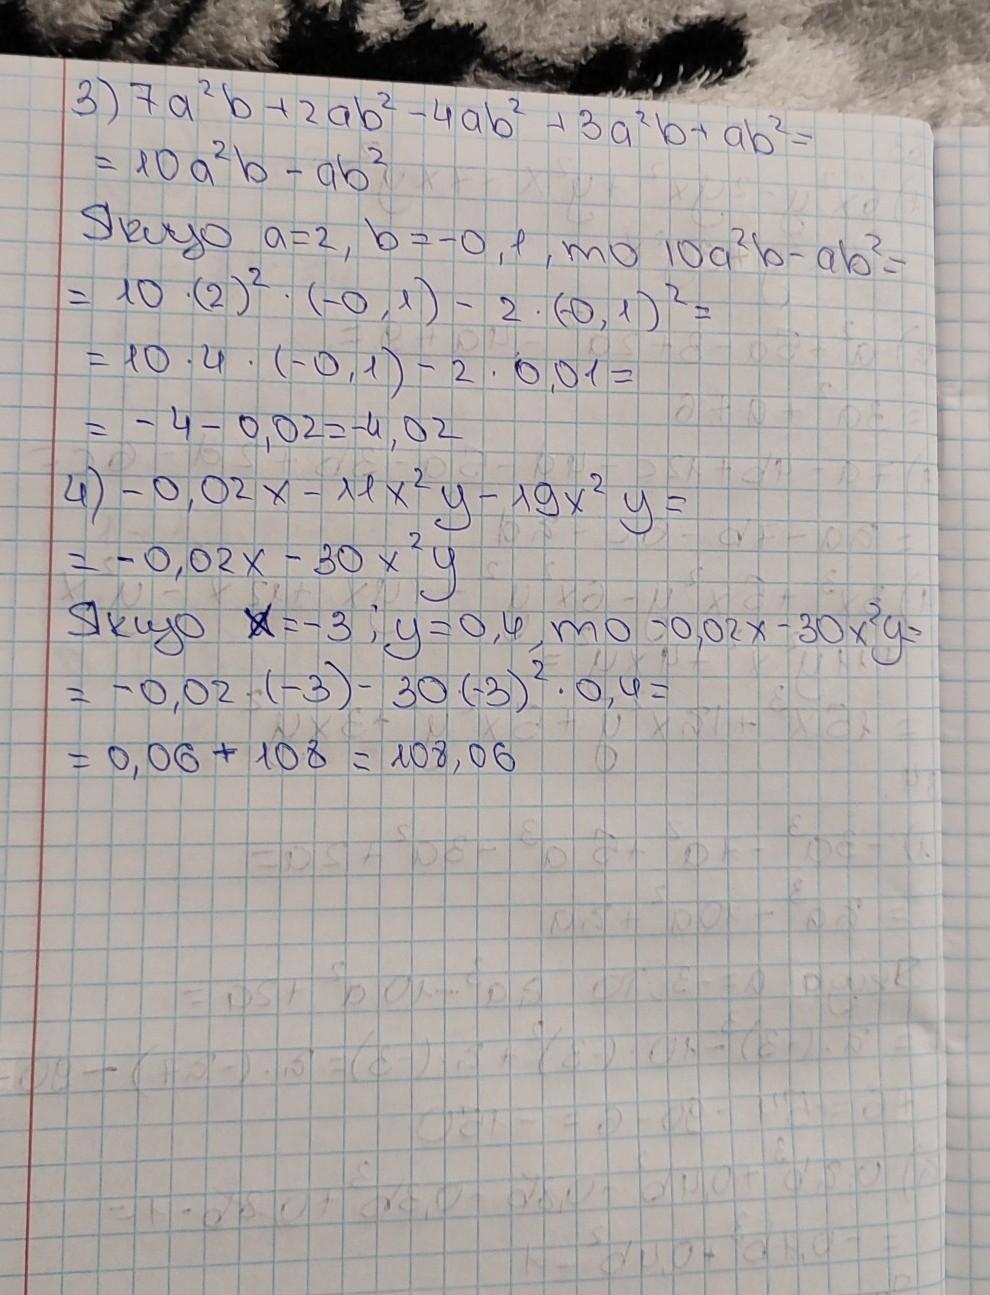 3) 7a²b + 2ab² - 4ab² + 3a²b + ab² =
= 10a²b - ab²
Якщо a=2, b=-0,1, то 10a²b - ab² =
= 10 · (2)² · (-0,1) - 2 · (-0,1)² =
= 10 · 4 · (-0,1) - 2 · 0,01 =
= -4 - 0,02 = -4,02
4) -0,02x - 11x²y - 19x²y =
= -0,02x - 30x²y
Якщо x=-3; y=0,4, то -0,02x - 30x²y =
= -0,02 · (-3) - 30 · (-3)² · 0,4 =
= 0,06 + 108 = 108,06